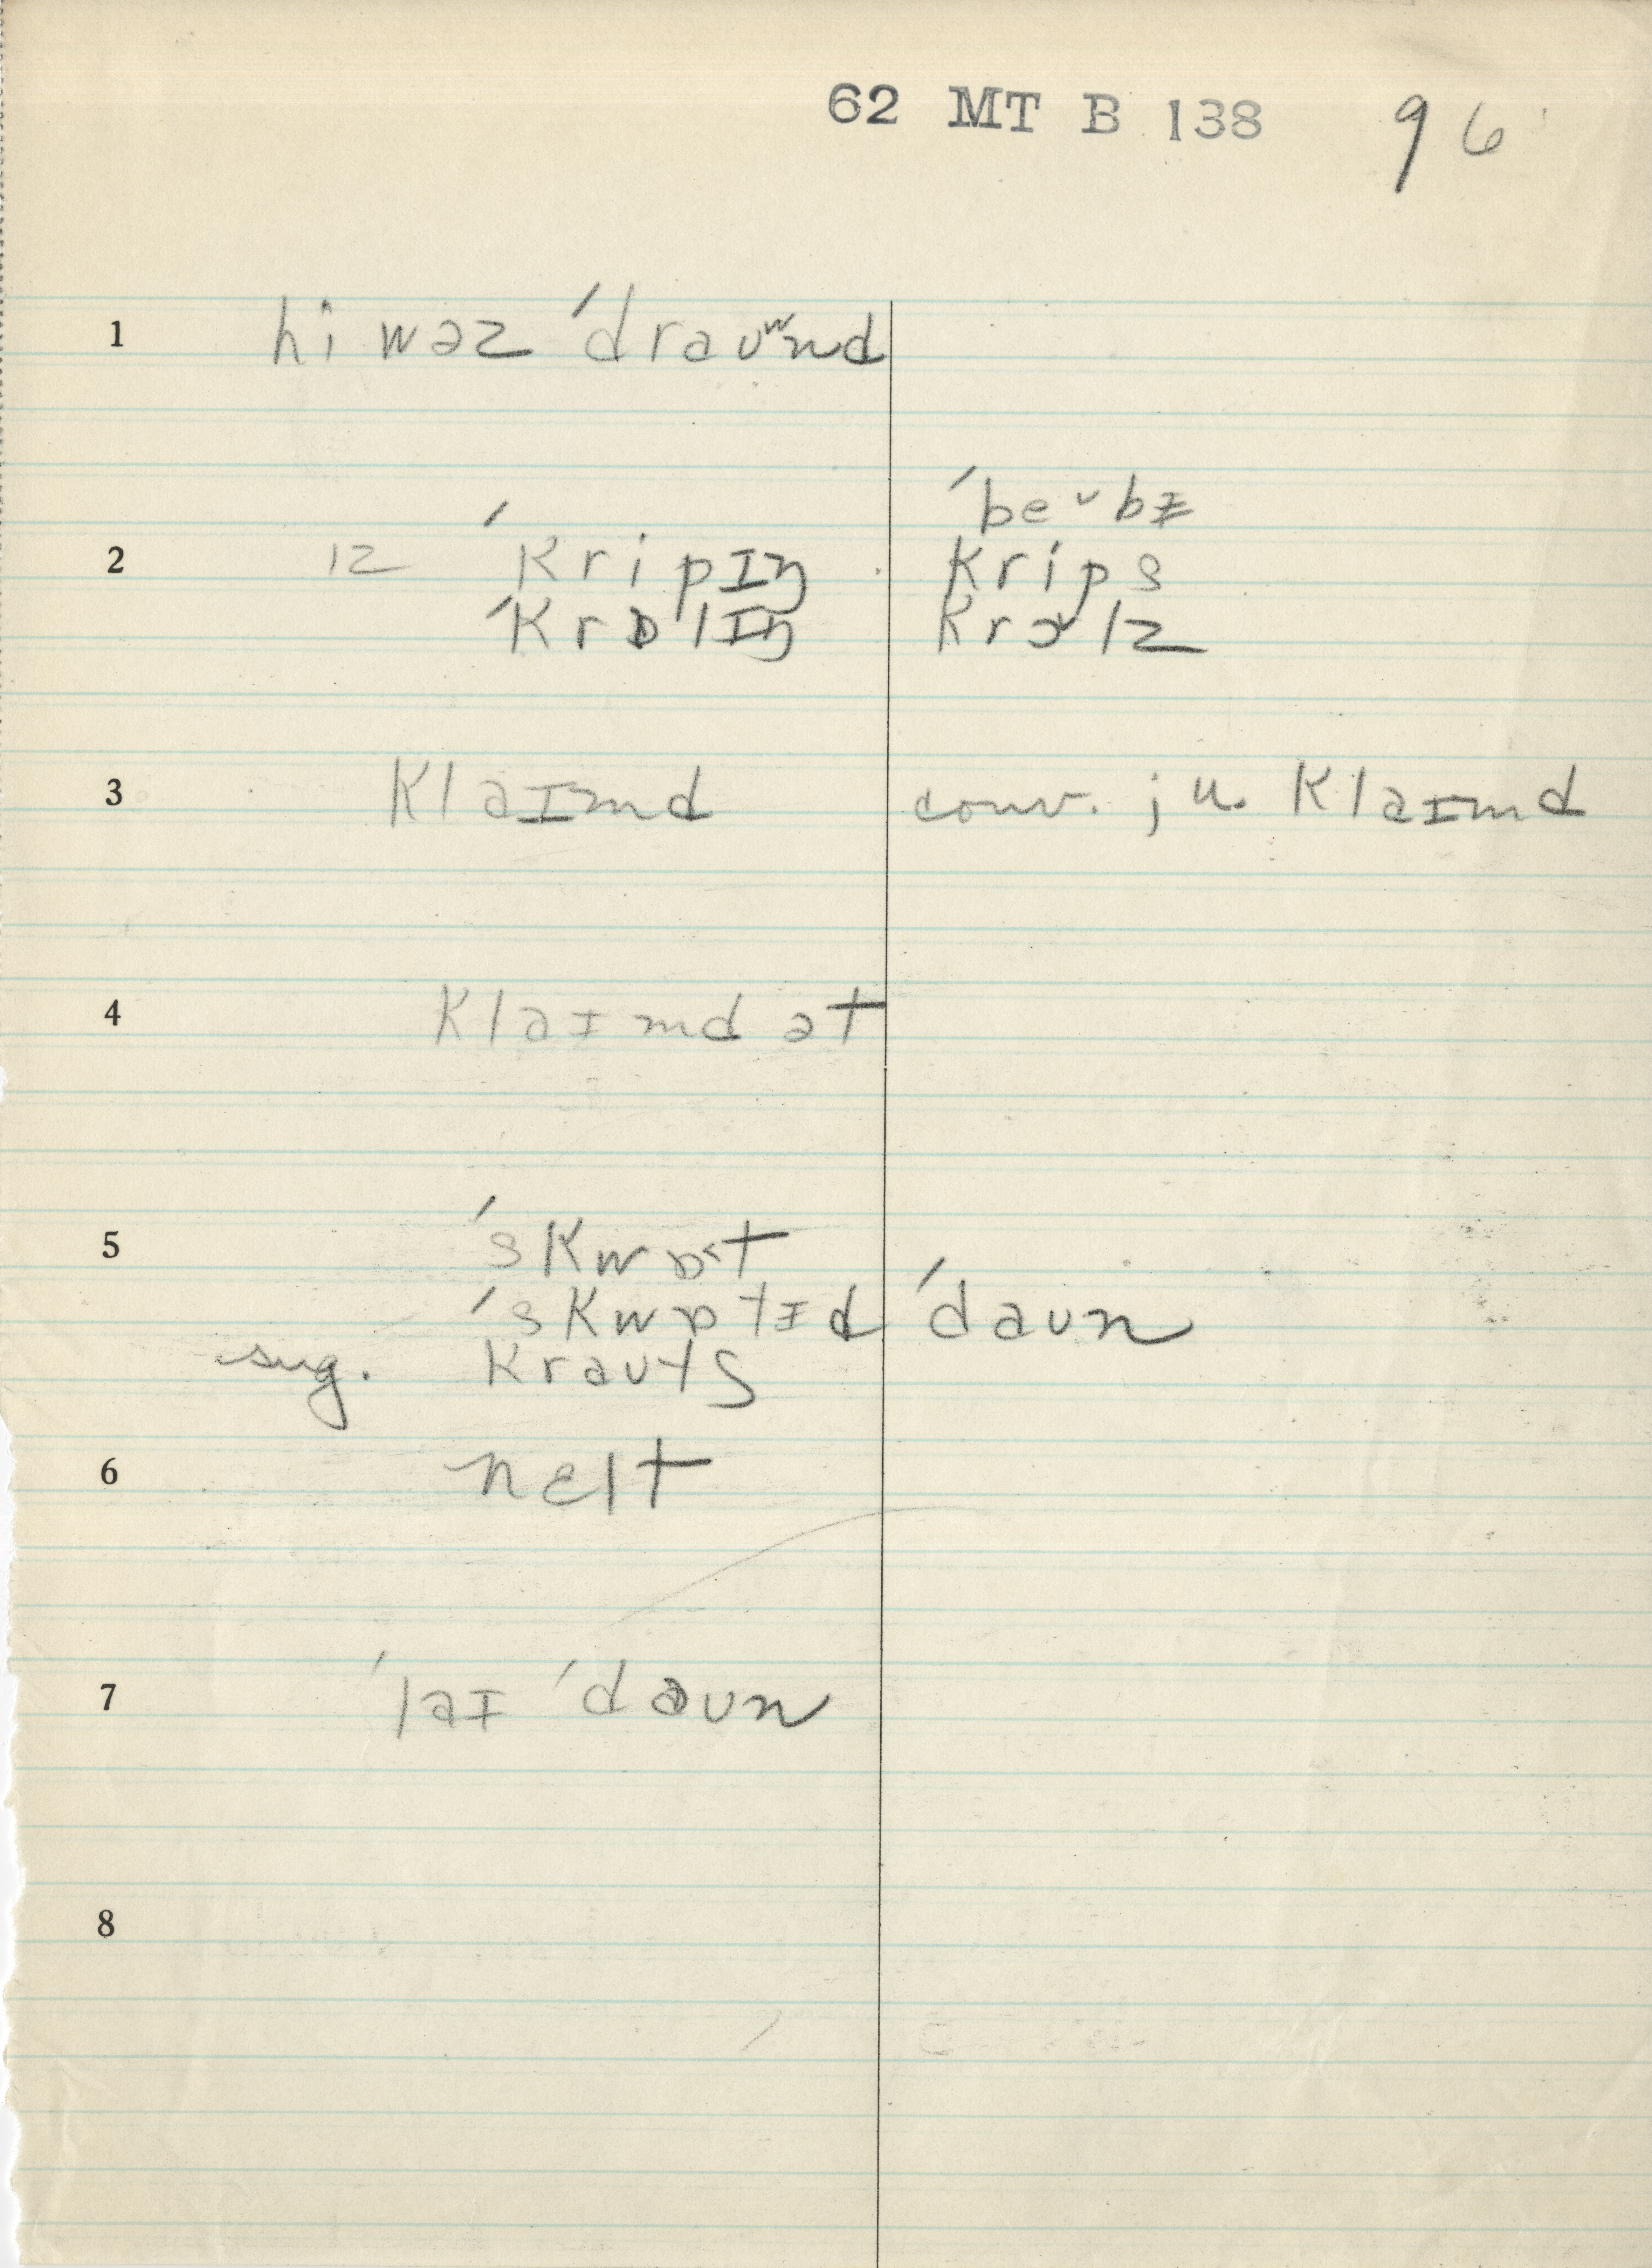 62 MT B 138 96
1 hi wəz ˈdraʊʷnd
ˈbe˅bɨ
2 ɪz ˈkripɪŋ krips
ˈkrɒlɪŋ krɔ˅lz
3 klaɪmd conv. ju klaɪmd
4 klaɪmd ət
5 ˈskwɒ˂t
ˈskwɒtɪd ˈdaʊn
sug. kraʊtʃ
6 nɛlt
7 ˈlaɪ ˈdaʊn
8